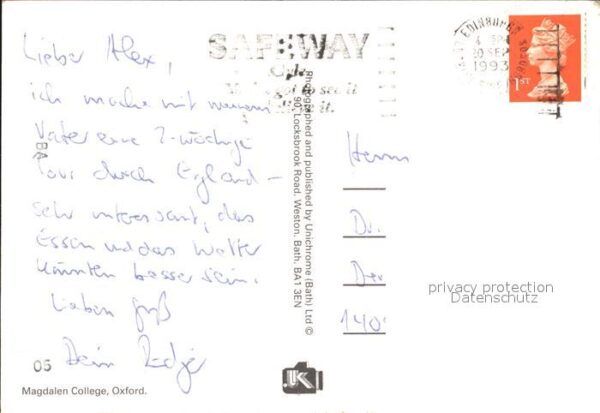 Lieber Alex,
ich mache mit meinem
Vater eine 2-wöchige
Tour durch England –
sehr interessant, das
Essen und das Wetter
könnten besser sein.
Lieben Gruß
Dein
05
Magdalen College, Oxford.
BA
Photographed and published by Unichrome (Bath) Ltd ©
Locksbrook Road, Weston, Bath. BA1 3EN
SAFEWAY
to see it
it.
EDINBURGH
20 SEP
1993
1ST
Herrn
Dr.
140
privacy protection
Datenschutz